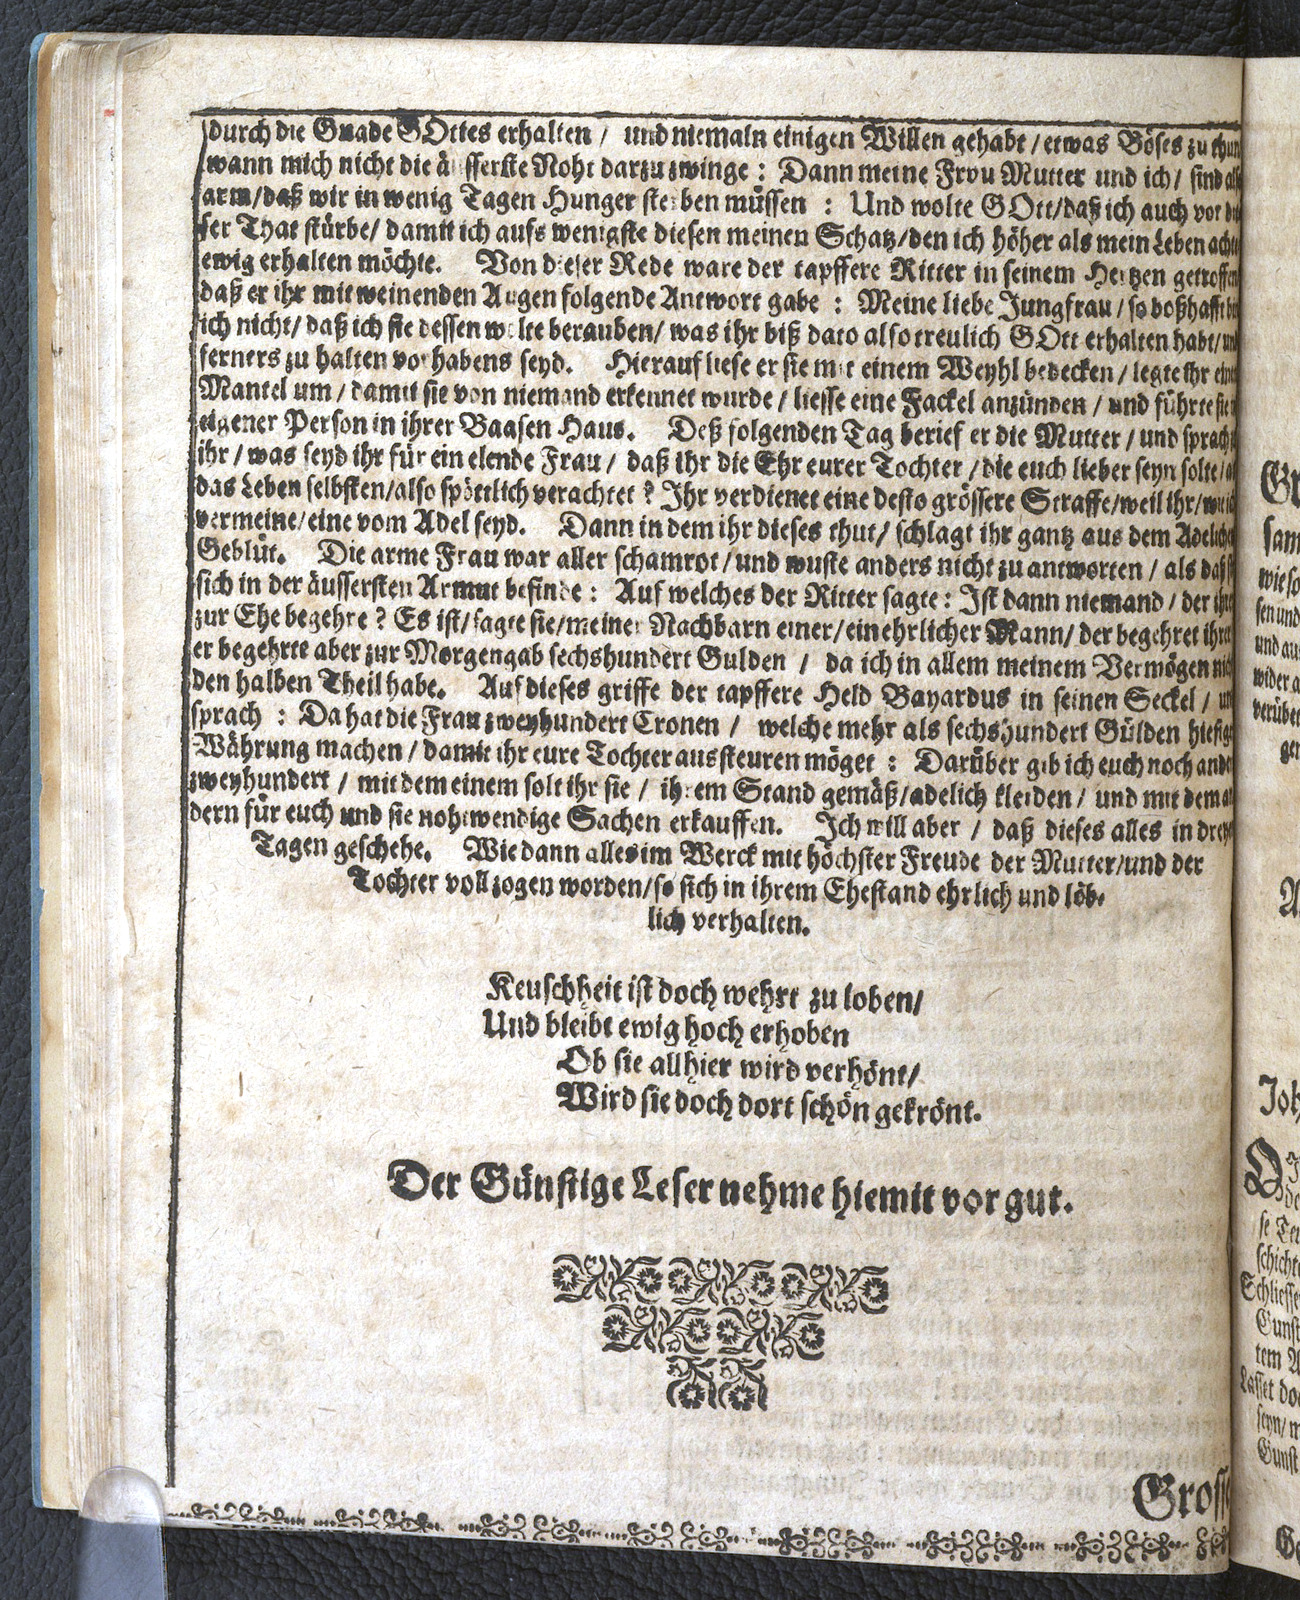 durch die Gnade GOttes erhalten / und niemaln einigen Willen gehabt / etwas Böses zu thun
wann mich nicht die äusserste Noht darzu zwinge : Dann meine Frau Mutter und ich / sind
arm / daß wir in wenig Tagen Hunger sterben müssen : Und wolte GOtt / daß ich auch vor
ser That stürbe / damit ich aufs wenigste diesen meinen Schatz / den ich höher als mein Leben
ewig erhalten möchte. Von dieser Rede ware der tapffere Ritter in seinem Hertzen getroffen
daß er ihr mit weinenden Augen folgende Antwort gabe : Meine liebe Jungfrau / so boßhafft
ich nicht / daß ich sie dessen wolte berauben / was ihr biß dato also treulich GOtt erhalten habt /
ferners zu halten vorhabens seyd. Hierauf liese er sie mit einem Weyhl bedecken / legte ihr
Mantel um / damit sie von niemand erkennet wurde / liesse eine Fackel anzünden / und führte sie
eigener Person in ihrer Baasen Haus. Deß folgenden Tag berief er die Mutter / und sprach
ihr / was seyd ihr für ein elende Frau / daß ihr die Ehr eurer Tochter / die euch lieber seyn solte /
das Leben selbsten / also spöttlich verachtet ? Ihr verdienet eine desto grössere Straffe / weil ihr /
vermeine / eine vom Adel seyd. Dann in dem ihr dieses thut / schlagt ihr gantz aus dem
Geblüt. Die arme Frau war aller schamrot / und wuste anders nicht zu antworten / als daß
sich in der äussersten Armut befinde : Auf welches der Ritter sagte : Ist dann niemand / der
zur Ehe begehre ? Es ist / sagte sie / meiner Nachbarn einer / ein ehrlicher Mann / der begehret
er begehrte aber zur Morgengab sechshundert Gulden / da ich in allem meinem Vermögen
den halben Theil habe. Auf dieses griffe der tapffere Held Bayardus in seinen Seckel /
sprach : Da hat die Frau zweyhundert Cronen / welche mehr als sechshundert Gülden
Währung machen / damit ihr eure Tochter aussteuren möget : Darüber gib ich euch noch
zweyhundert / mit dem einem solt ihr sie / ihrem Stand gemäß / adelich kleiden / und mit dem
dern für euch und sie nohtwendige Sachen erkauffen. Ich will aber / daß dieses alles in
Tagen geschehe. Wie dann alles im Werck mit höchster Freude der Mutter / und der
Tochter vollzogen worden / so sich in ihrem Ehestand ehrlich und löb-
lich verhalten.
Keuschheit ist doch wehrt zu loben /
Und bleibt ewig hoch erhoben
Ob sie allhier wird verhönt /
Wird sie doch dort schön gekrönt.
Der Günstige Leser nehme hiemit vor gut.